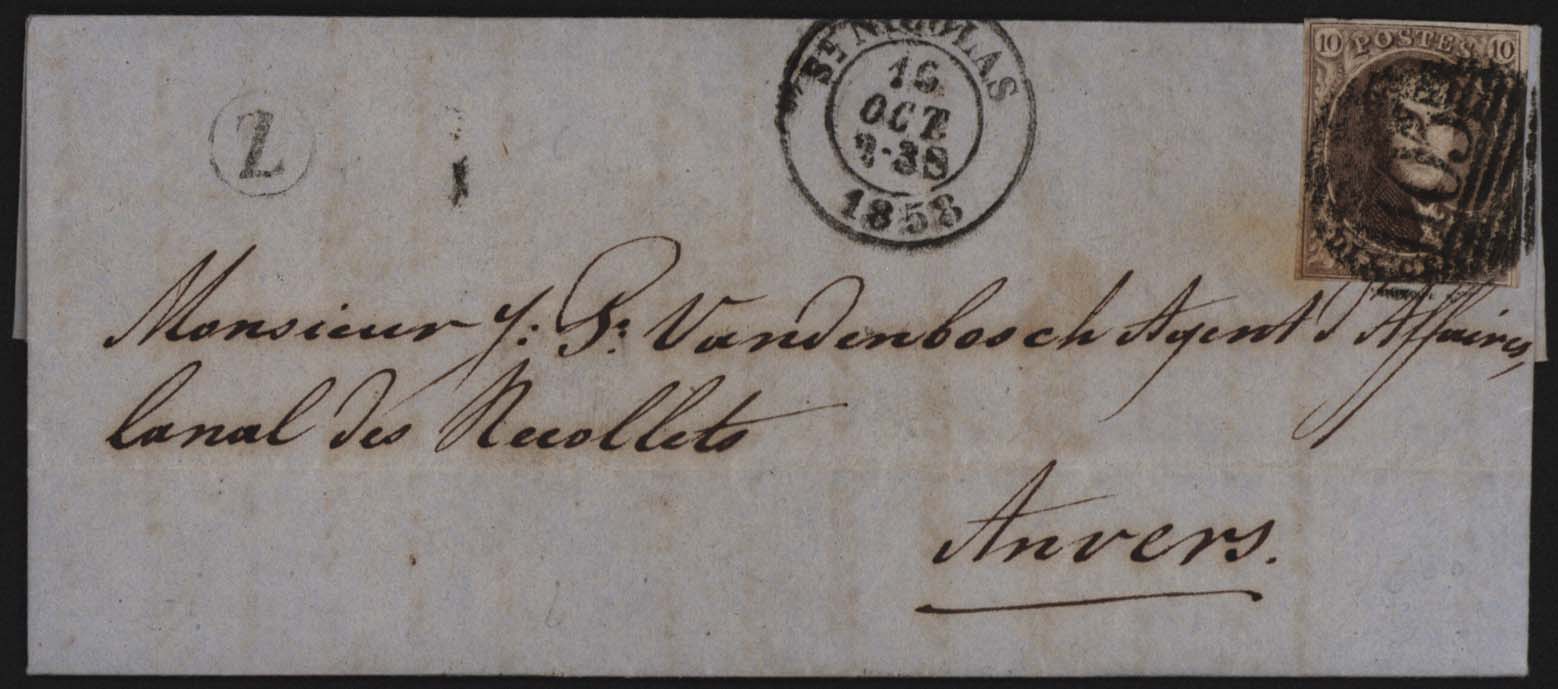 10 POSTES 10
ST NICOLAS
16
OCT
1858
Z
Monsieur J: Bn: Vandenbosch Agent d'Affaires,
Canal des Recollets
Anvers.